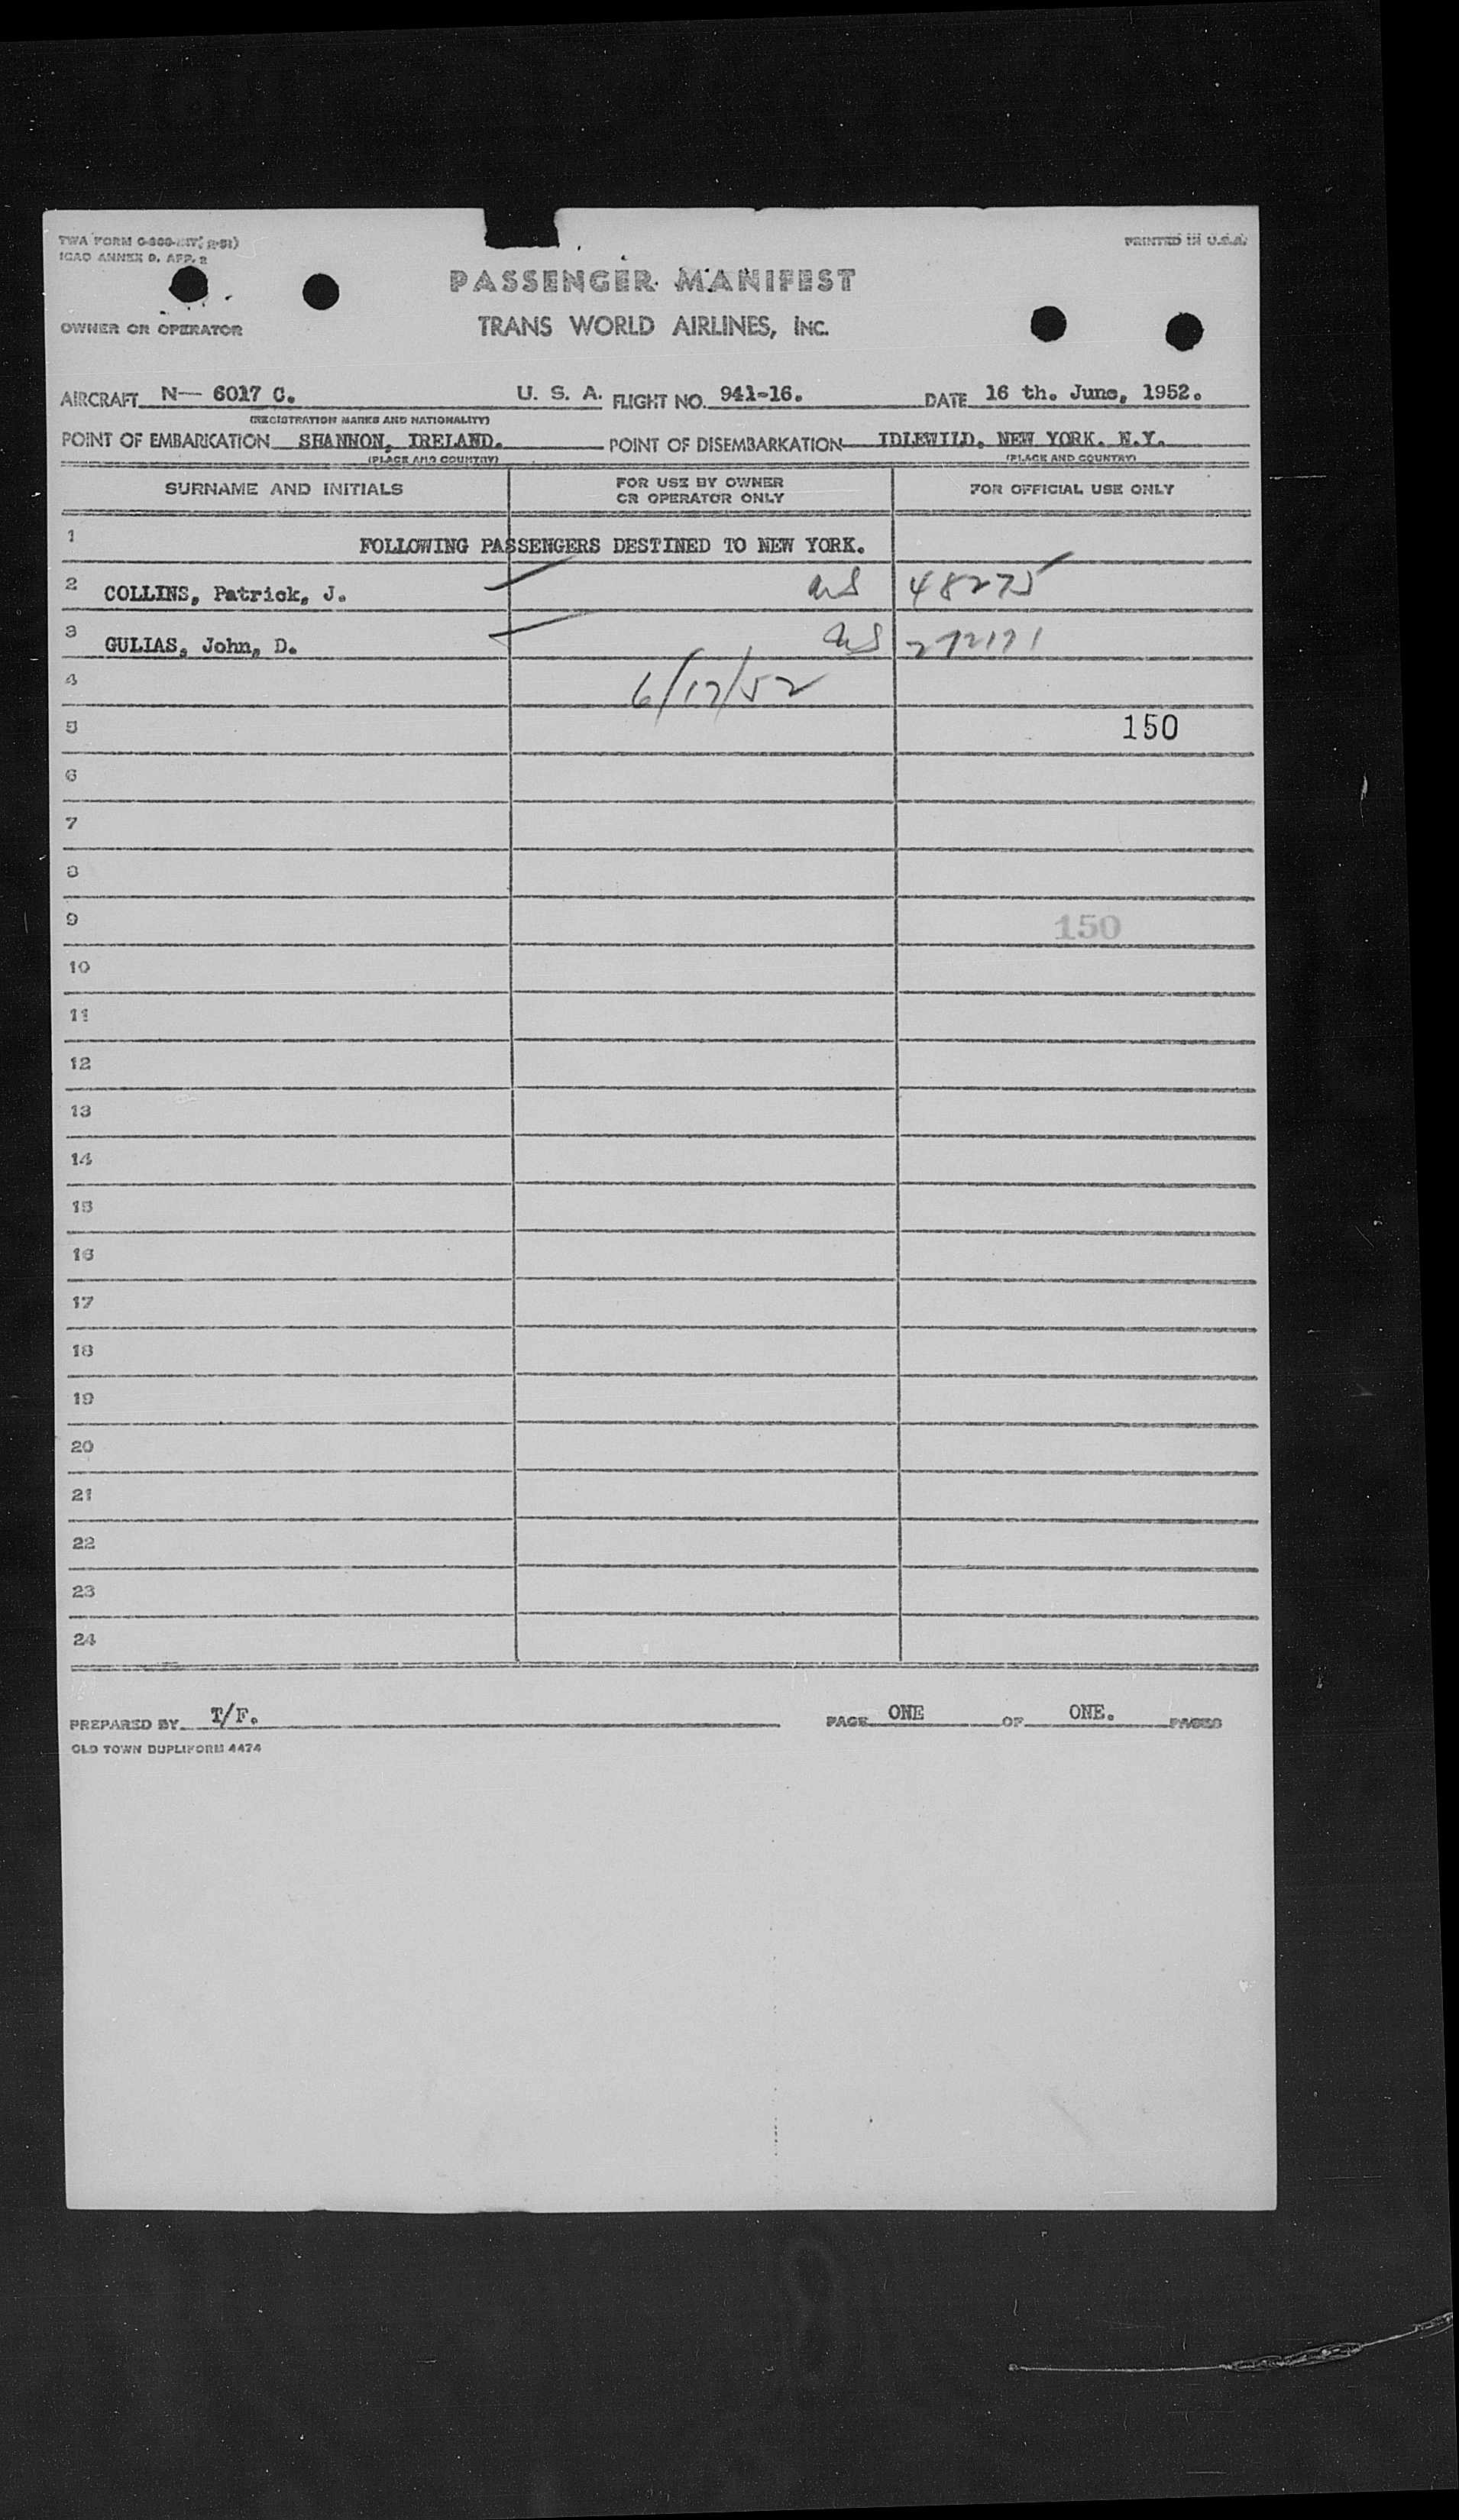 PRINTED IN U.S.A.
ICAO ANNEX 9, APP. 2
PASSENGER MANIFEST
OWNER OR OPERATOR TRANS WORLD AIRLINES, INC.
AIRCRAFT N— 6017 C. U. S. A. FLIGHT NO. 941-16. DATE 16 th. June, 1952.
(REGISTRATION MARKS AND NATIONALITY)
POINT OF EMBARKATION SHANNON, IRELAND. POINT OF DISEMBARKATION IDLEWILD, NEW YORK. N.Y.
(PLACE AND COUNTRY) (PLACE AND COUNTRY)
SURNAME AND INITIALS FOR USE BY OWNER OR OPERATOR ONLY FOR OFFICIAL USE ONLY
1 FOLLOWING PASSENGERS DESTINED TO NEW YORK.
2 COLLINS, Patrick, J. 48275
3 GULIAS, John, D.
4 6/17/52
5 150
6
7
8
9 150
10
11
12
13
14
15
16
17
18
19
20
21
22
23
24
PREPARED BY T/F. PAGE ONE OF ONE. PAGES
OLD TOWN DUPLIFORM 4474